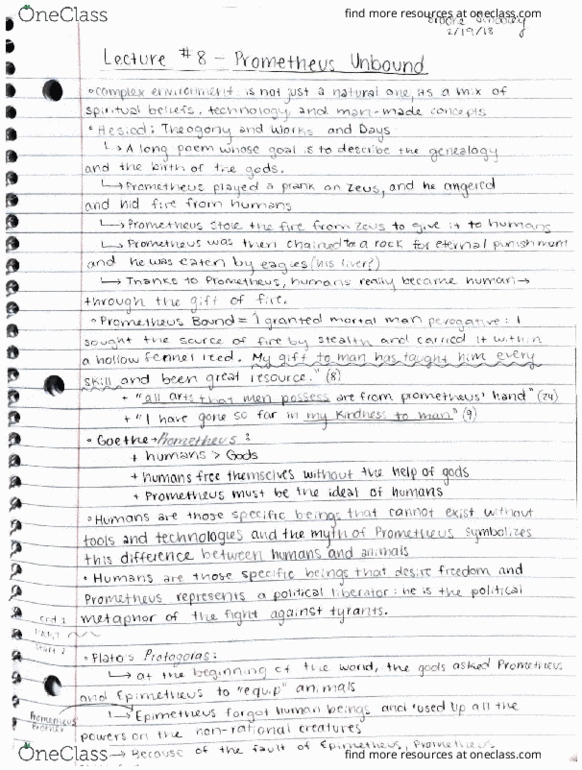 OneClass
find more resources at oneclass.com
2/19/18
Lecture #8 - Prometheus Unbound
• complex environment is not just a natural one, its a mix of
spiritual beliefs, technology, and man-made concepts
• Hesiod: Theogony and Works and Days
↳ A long poem whose goal is to describe the genealogy
and the birth of the gods.
↳ Prometheus played a prank on Zeus, and he angered
and hid fire from humans
↳ Prometheus stole the fire from Zeus to give it to humans
↳ Prometheus was then chained to a rock for eternal punishment
and he was eaten by eagles (his liver?)
↳ Thanks to Prometheus, humans really became human →
through the gift of fire.
• Prometheus Bound = "I granted mortal man perogative: I
sought the source of fire by stealth and carried it within
a hollow fennel reed. My gift to man has taught him every
skill and been great resource." (8)
+ "all arts that men possess are from prometheus' hand" (24)
+ "I have gone so far in my kindness to man" (9)
• Goethe → Prometheus:
+ humans > Gods
+ humans free themselves without the help of gods
+ Prometheus must be the ideal of humans
• Humans are those specific beings that cannot exist without
tools and technologies and the myth of Prometheus symbolizes
this difference between humans and animals
• Humans are those specific beings that desire freedom and
Prometheus represents a political liberator: he is the political
metaphor of the fight against tyrants.
end 1
start 2
• Plato's Protagoras:
↳ at the beginning of the world, the gods asked Prometheus
and Epimetheus to "equip" animals
Prometheus
brother
↳ Epimetheus forgot human beings and used up all the
powers on the non-rational creatures
→ Because of the fault of Epimetheus, Prometheus
OneClass
find more resources at oneclass.com